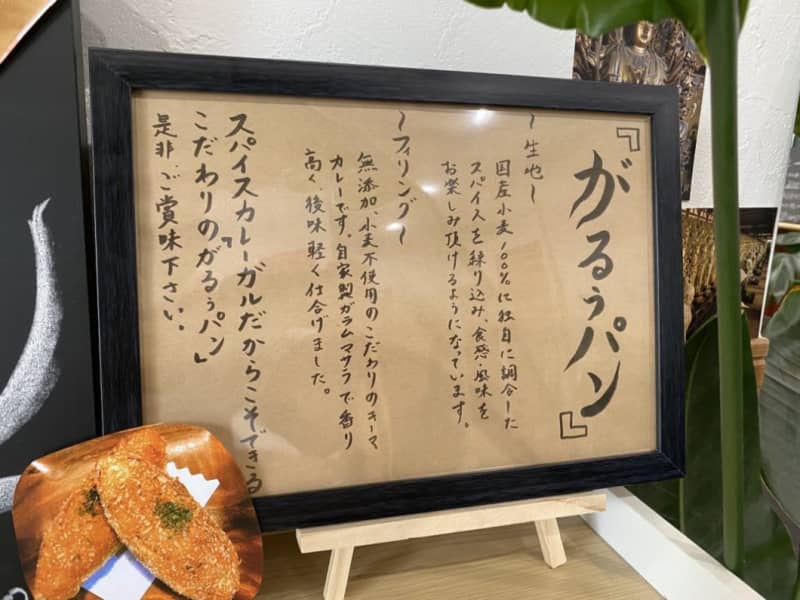 『がるぅパン』
〜生地〜
国産小麦100%に独自に調合した
スパイスを練り込み、食感・風味を
お楽しみ頂けるようになっています。
〜フィリング〜
無添加、小麦不使用のこだわりのキーマ
カレーです。自家製ガラムマサラで香り
高く、後味軽く仕合げました。
スパイスカレーガルだからこそできる
こだわりの『がるぅパン』
是非、ご賞味下さい。